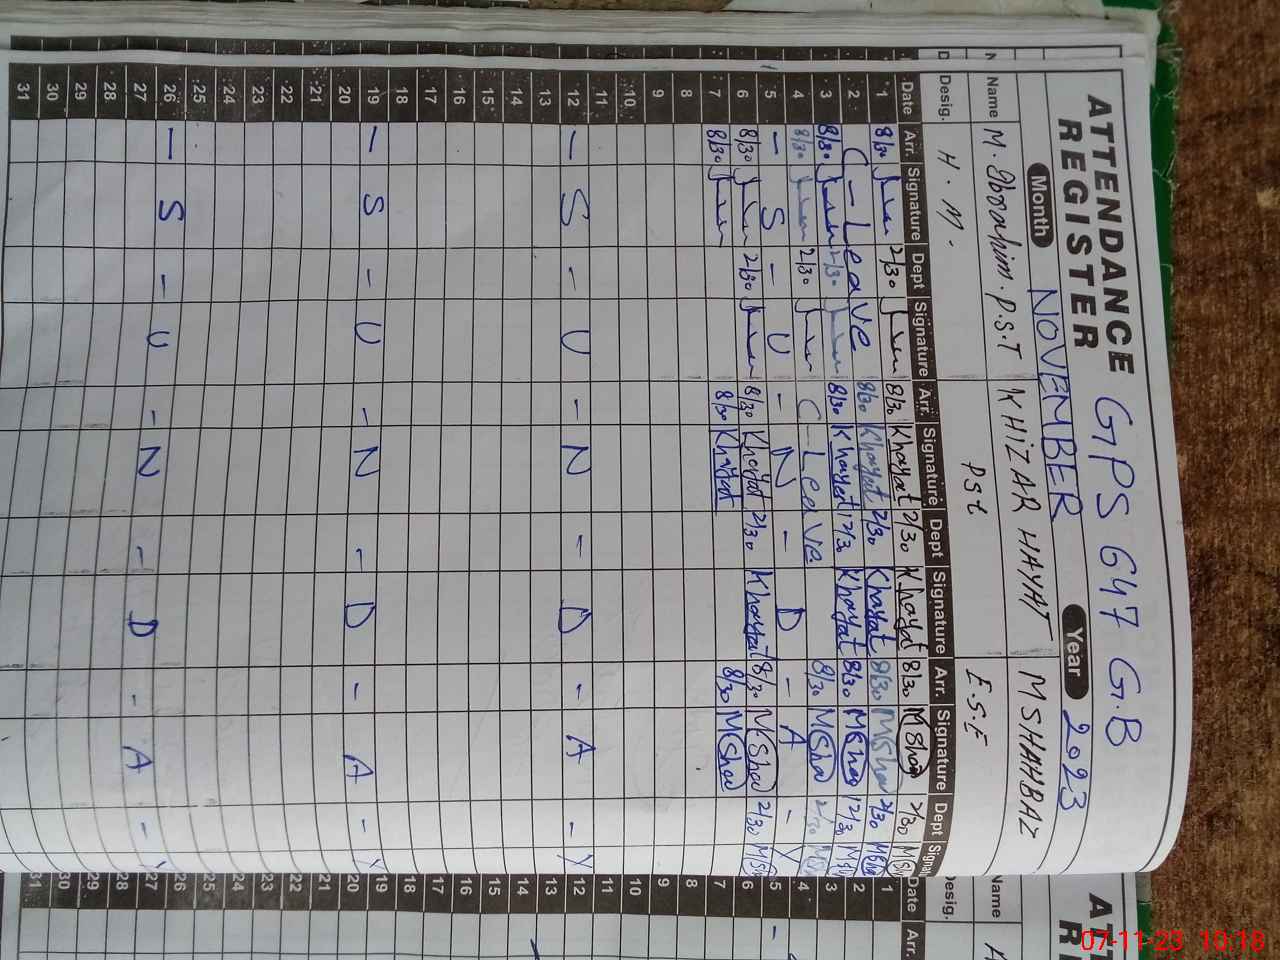 ATTENDANCE GPS 647 G.B
REGISTER
Month NOVEMBER Year 2023
Name M. Ibrahim. P.S.T KHIZAR HAYAT M SHAHBAZ
Desig. H. M. PSt E.S.E
Date Arr. Signature Dept Signature Arr. Signature Dept Signature Arr. Signature Dept Signat
1 8/30 2/30 8/30 Khayat 2/30 Khayat 8/30 MSha 2/30
2 C - Leave 8/30 Khayat 2/30 Khayat 8/30 MSha 2/30
3 8/30 12/30 8/30 Khayat 12/30 Khayat 8/30 MSha 12/30
4 8/30 2/30 C - Leave 8/30 MSha 2/30
5 - S - U - N - D - A - Y
6 8/30 2/30 8/30 Khayat 2/30 Khayat 8/30 MSha 2/30
7 8/30 8/30 Khayat 8/30 MSha
8
9
10
11
12 - S - U - N - D - A - Y
13
14
15
16
17
18
19 - S - U - N - D - A - Y
20
21
22
23
24
25
26 - S - U - N - D - A - Y
27
28
29
30
31
Name
Desig.
Date Arr.
1
2
3
4
5
6
7
8
9
10
11
12
13
14
15
16
17
18
19
20
21
22
23
24
25
26
27
28
29
30
31
07-11-23 10:18